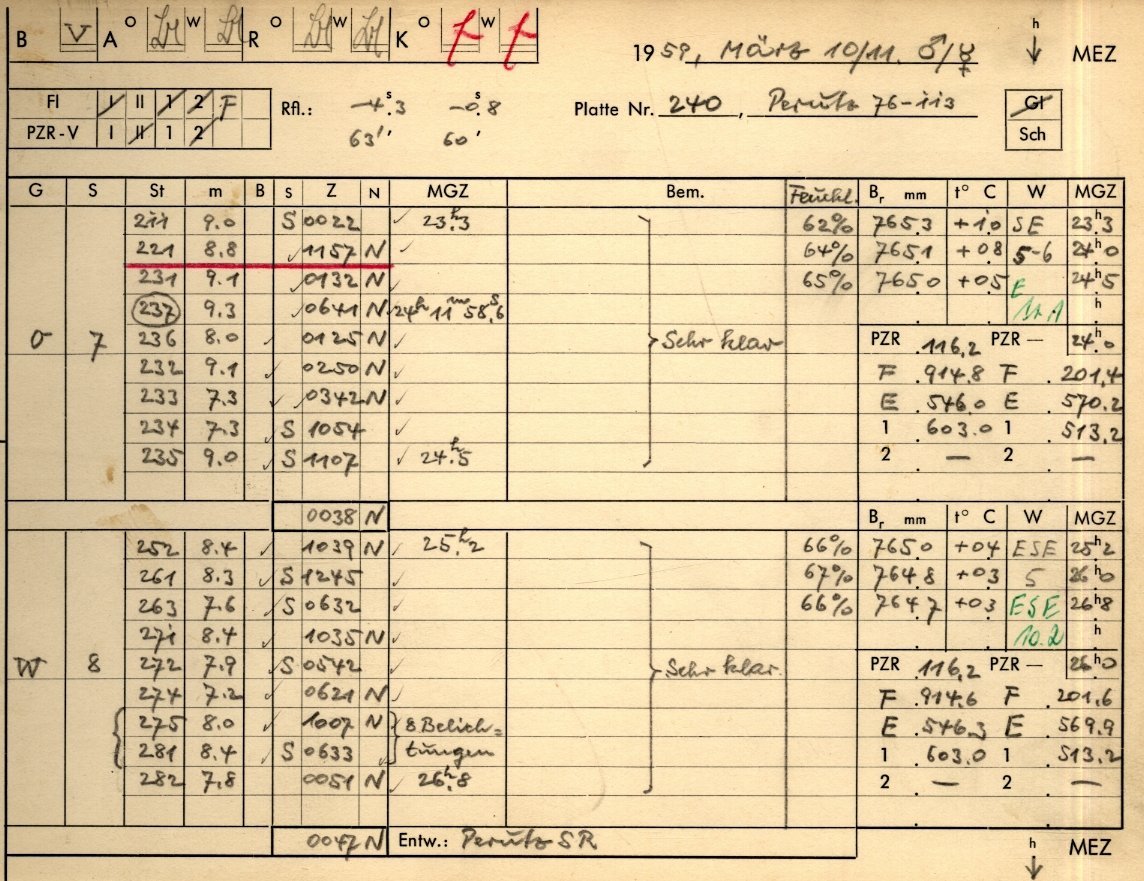 B V A O W R O W K O W
1959, März 10/11. ♂/☿ h ↓ MEZ
Fl I II 1 2 F Rfl.: −4ˢ.3 −0ˢ.8 Platte Nr. 240, Perutz 76-113 Gl
PZR-V I II 1 2 63'' 60'' Sch
G S St m B S Z N MGZ Bem. Feucht. Bᵣ mm t° C W MGZ
211 9.0 S 0022 ✓ 23ʰ.3 62% 765.3 +1.0 SE 23ʰ.3
221 8.8 ✓ 1157 N ✓ 64% 765.1 +0.8 5-6 24ʰ.0
231 9.1 ✓ 0132 N 65% 765.0 +0.5 E 24ʰ.5
237 9.3 ✓ 0641 N 24ʰ 11ᵐ 58ˢ.6 h
O 7 236 8.0 ✓ 0125 N ✓ Sehr klar PZR 116.2 PZR — 24ʰ.0
232 9.1 ✓ 0250 N ✓ F 914.8 F 201.4
233 7.3 ✓ 0342 N ✓ E 546.0 E 570.2
234 7.3 ✓ S 1054 ✓ 1 603.0 1 513.2
235 9.0 ✓ S 1107 ✓ 24ʰ.5 2 — 2 —
0038 N Bᵣ mm t° C W MGZ
252 8.4 ✓ 1039 N ✓ 25ʰ.2 66% 765.0 +0.4 ESE 25ʰ.2
261 8.3 ✓ S 1245 ✓ 67% 764.8 +0.3 5 26ʰ.0
263 7.6 ✓ S 0632 ✓ 66% 764.7 +0.3 ESE 26ʰ.8
271 8.4 ✓ 1035 N ✓ 10.2 h
W 8 272 7.9 ✓ S 0542 ✓ Sehr klar. PZR 116.2 PZR — 26ʰ.0
274 7.2 ✓ 0621 N ✓ F 914.6 F 201.6
275 8.0 ✓ 1007 N ✓ 8 Belich= E 546.3 E 569.9
281 8.4 ✓ S 0633 tungen 1 603.0 1 513.2
282 7.8 0051 N ✓ 26ʰ.8 2 — 2 —
0047 N Entw.: Perutz SR h ↓ MEZ